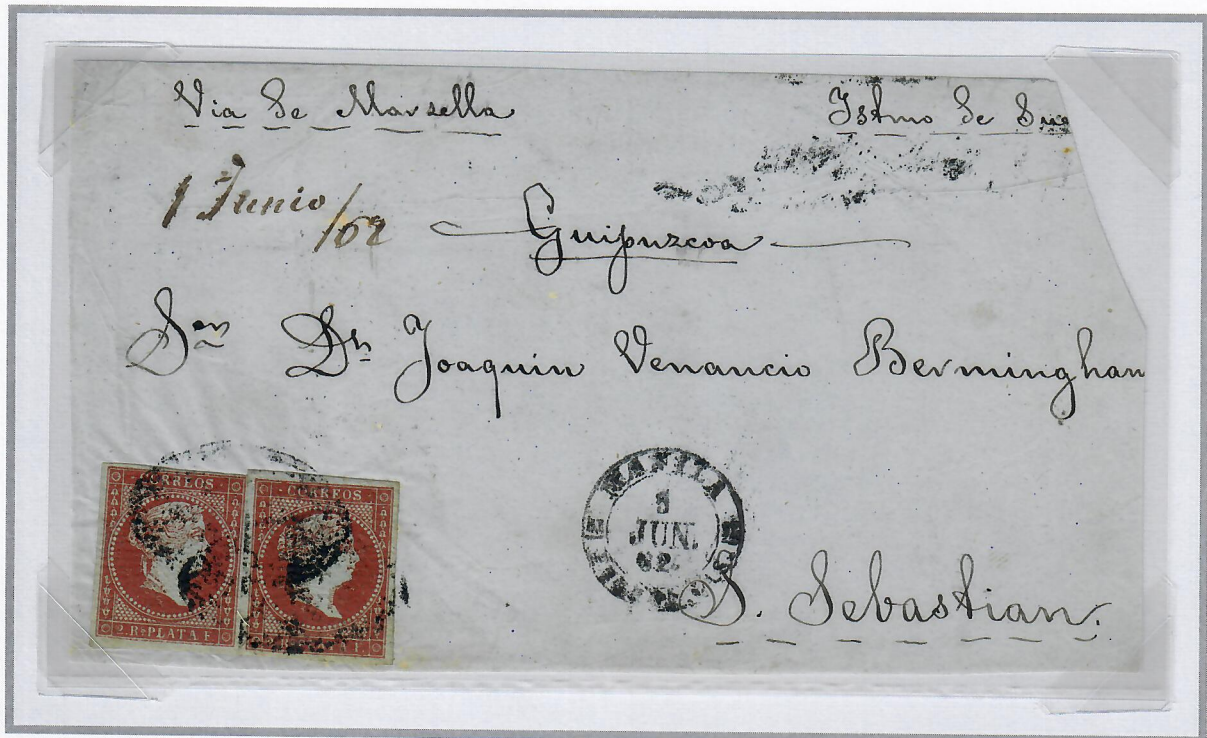 Via de Marsella
Istmo de Sue
1 Junio /62
Guipuzcoa
Sʳ Dⁿ Joaquin Venancio Bermingham
CORREOS
CORREOS
2. Rs PLATA F.
MANILA
JUN.
62.
S. Sebastian.